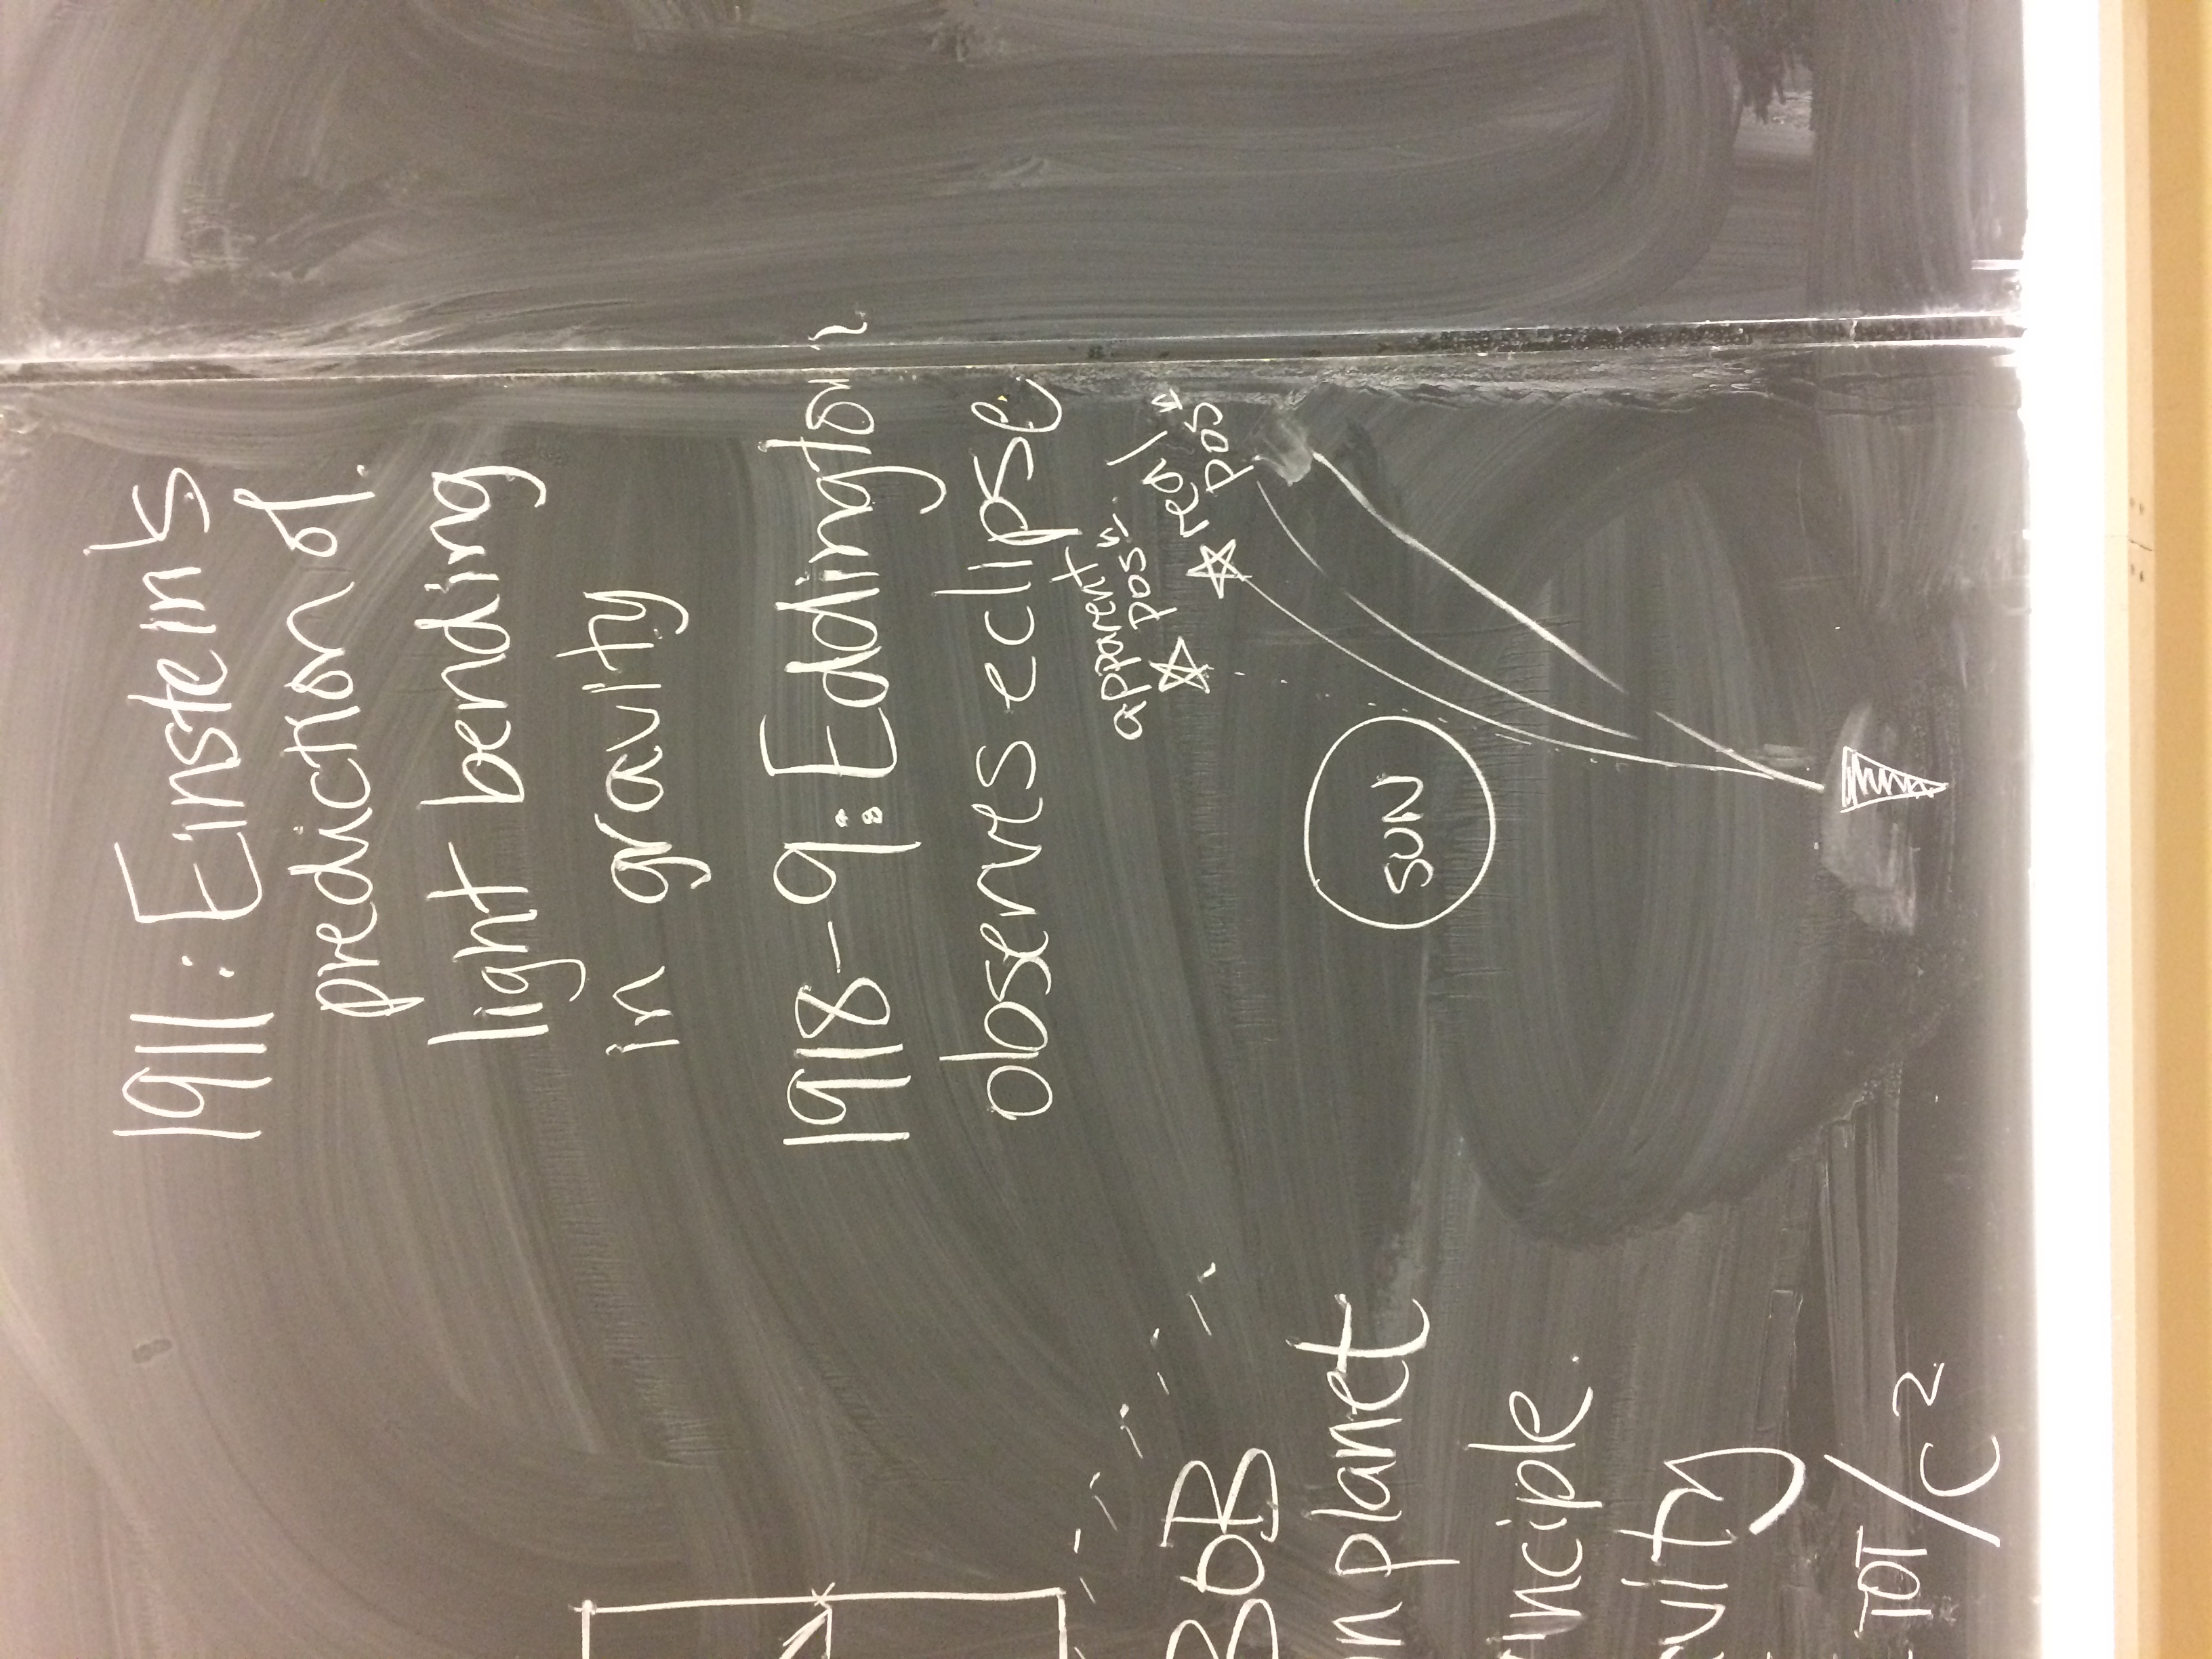 1911: Einstein's
prediction of
light bending
in gravity
1918-9: Eddington
observes eclipse
apparent
pos
"real"
pos
SUN
BOB
n planet
nciple.
vity
TOT/c²